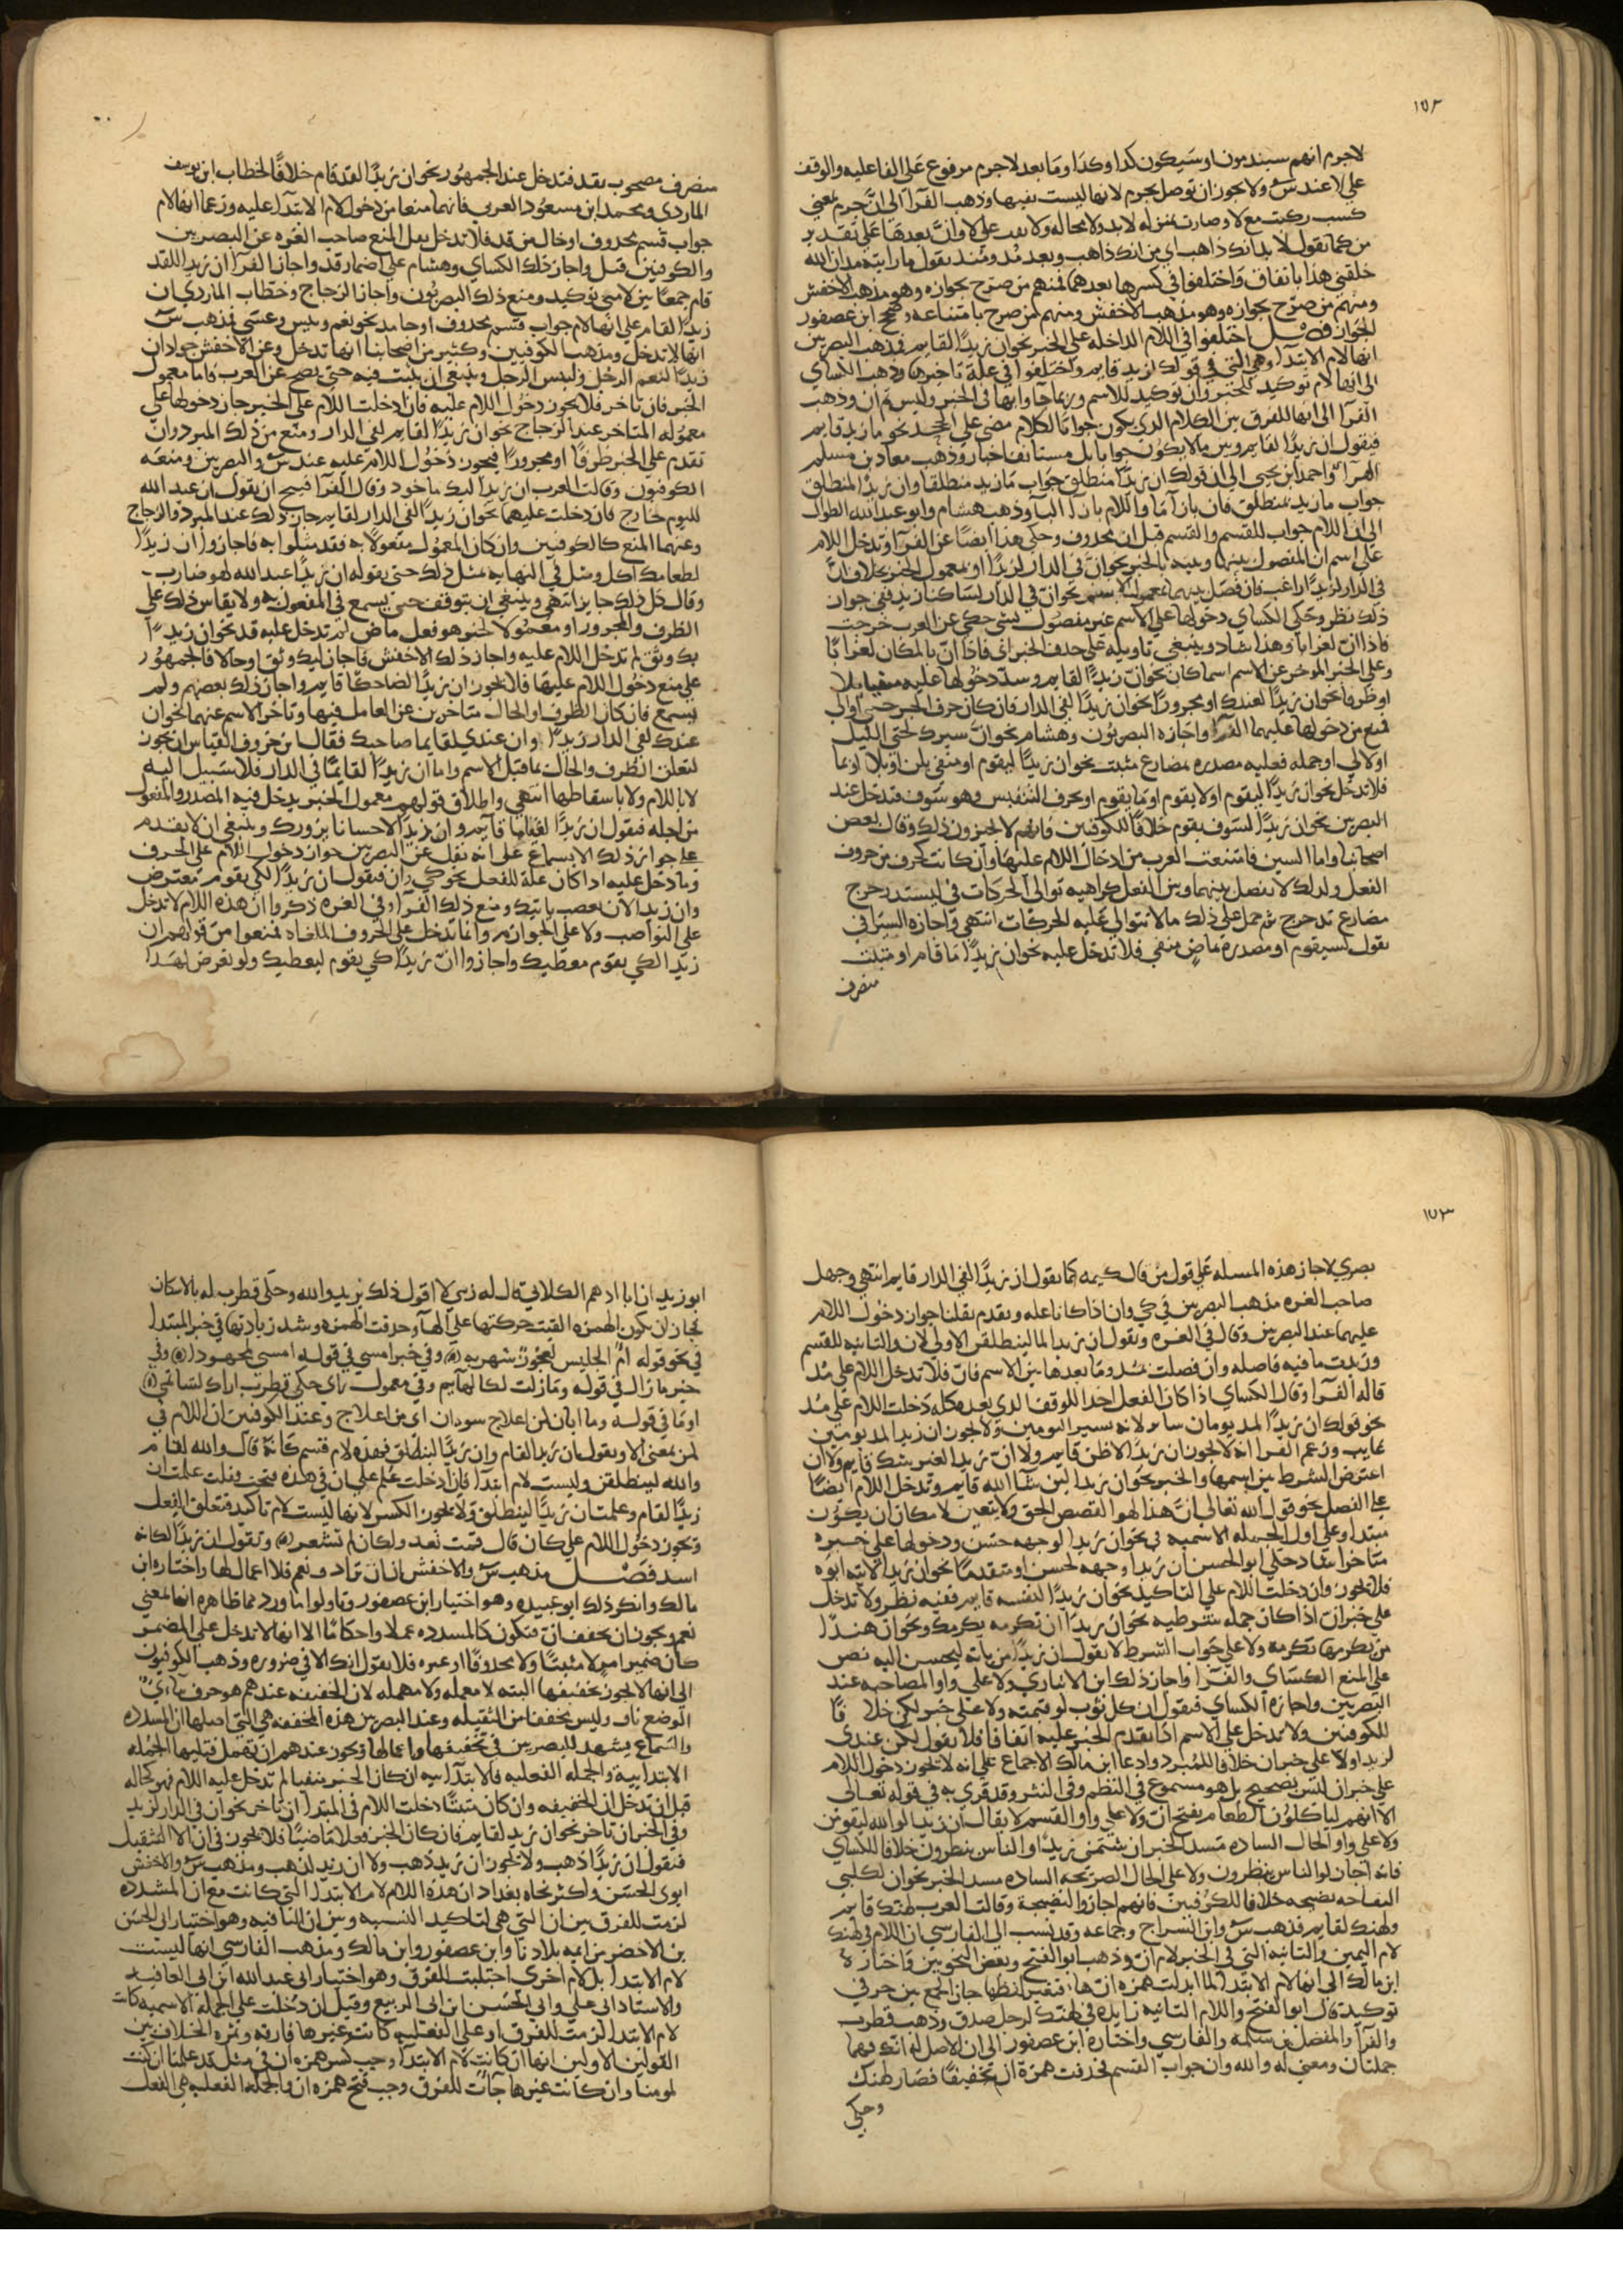 ١٥٢
لا جرم انهم سيندمون او سيكون كذا وكذا وما بعد لا جرم مرفوع على الفاعليه والوقف
على لا عند س ولا يجوز ان توصل بجرم لانها ليست بعضها وذهب الفرآ الى ان جرم بمعنى
كسب ركبت مع لا وصارت بمنزله لا بد ولا محاله ولا بعد على لا وان بعدها على تقدير
من كما تقول لا بد انك ذاهب اي من انك ذاهب وبعد مذ ومنذ تقول ما رايته مذ ان الله
خلقني هذا باتفاق واختلفوا في كسرها بعدهما فمنهم من صرح بجوازه وهو مذهب الاخفش
ومنهم من صرح بجوازه وهو مذهب الاخفش ومنهم من صرح بامتناعه وصحح ابن عصفور
الجواز فصل اختلفوا في اللام الداخله على الخبر نحو ان زيدًا لقايم فذهب البصريين
انها لام الابتدا وهي التي في قولك لزيد قايم واختلفوا في علة تاخيرها وذهب الكساي
الى انها لام توكيد للخبر وان توكيد للاسم وربما جآوا بها في الخبر وليس ثم ان وذهب
الفرآ الى انها للفرق بين الكلام الذي يكون جوابًا لكلام مضى على الجحد نحو ما زيد قايم
فيقول ان زيدًا لقايم وبين ما لا يكون جوابا بل مستانف اخبار وذهب معاذ بن مسلم
الهرآ واحمد بن يحيى الى ان قولك ان زيدًا منطلق جواب ما زيد منطلقا وان زيدًا لمنطلق
جواب ما زيد بمنطلق فان بازآ ما واللام بازآ البآ وذهب هشام وابو عبد الله الطوال
الى ان اللام جواب للقسم والقسم قبل ان محذوف وحكي هذا ايضًا عن الفرآ وتدخل اللام
على اسم ان المفصول بينها وبينه بالخبر نحو ان في الدار لزيدًا او بمعمول الخبر بخلاف ان
في الدار لزيدًا راغب فان فصل بينهما بمعمول الاسم نحو ان في الدار لساكنا زيد ففي جواز
ذلك نظر وحكى الكساي دخولها على الاسم غير مفصول بشي حكى عن العرب خرجت
فاذا ان لغرابا وهذا شاذ وينبغي تاويله على حذف الخبر اي فاذا ان بالمكان لغرابًا
وعلى الخبر الموخر عن الاسم اسما كان نحو ان زيدًا لقايم وسدّ دخولها عليه منفيا بلا
او ظرفا نحو ان زيدًا لعندك او مجرورًا نحو ان زيدًا لفي الدار فان كان حرف الجر حتى او الى
فمنع من دخولها عليهما الفرآ واجازه البصريون وهشام نحو ان سيرك لحتى الليل
او لالى او جمله فعليه مصدره بمضارع مثبت نحو ان زيدًا ليقوم او منفي بلن او بلا او بما
فلا تدخل نحو ان زيدًا لن يقوم او لا يقوم او ما يقوم او بحرف التنفيس وهو سوف فتدخل عند
البصريين نحو ان زيدًا لسوف يقوم خلافًا للكوفيين فانهم لا يجيزون ذلك وقال بعض
اصحابنا واما السين فامتنعت العرب من ادخال اللام عليها وان كانت كحرف من حروف
الفعل ولذلك لا يفصل بينهما وبين الفعل كراهيه توالى الحركات في ليستدحرج
مضارع تدحرج ثم حمل على ذلك ما لا تتوالى عليه الحركات انتهى واجازه السيرافي
تقول لسيقوم او مصدره ماض منفي فلا تدخل عليه نحو ان زيدًا ما قام او مثبت
متصرف
متصرف مصحوب بقد فتدخل عند الجمهور نحو ان زيدًا لقد قام خلافًا لخطاب ابن يوسف
الماردي ومحمد ابن مسعود العربي فانهما منعا من دخول لام الابتدآ عليه وزعما انها لام
جواب قسم محذوف او خال من قد فلا تدخل نقل المنع صاحب الغره عن البصريين
والكوفيين قبل واجاز ذلك الكساي وهشام على اضمار قد واجاز الفرآ ان زيدًا للقد
قام جمعًا بين لامي توكيد ومنع ذلك البصريون واجاز الزجاج وخطاب الماردي ان
زيدًا لقام على انها لام جواب قسم محذوف او جامد نحو نعم وبيس وعسى فمذهب س
انها لا تدخل ومذهب الكوفيين وكثير من اصحابنا انها تدخل وعن الاخفش جواز ان
زيدًا لنعم الرجل ولبيس الرجل وينبغي ان يثبت فيه حتى يصح عن العرب فاما معمول
الخبر فان تاخر فلا يجوز دخول اللام عليه فان ادخلت اللام على الخبر جاز دخولها على
معموله المتاخر عند الزجاج نحو ان زيدًا لقايم لفي الدار ومنع من ذلك المبرد وان
تقدم على الخبر ظرفًا او مجرورًا فيجوز دخول اللام عليه عند س والبصريين ومنعه
الكوفيون وقالت العرب ان زيدًا لبك ماخوذ وقال الفرآ قبيح ان تقول ان عبد الله
لليوم خارج فان دخلت عليهما نحو ان زيدًا لفي الدار لقايم جاز ذلك عند المبرد والزجاج
وعنهما المنع كالكوفيين وان كان المعمول مفعولا به فقد مثلوا به فاجازوا ان زيدًا
لطعامك اكل ومثل في النهايه بمثل ذلك حتى بقوله ان زيدًا عبد الله لهو ضارب
وقال كل ذلك جايز انتهى وينبغي ان يتوقف حتى يسمع في المفعول به ولا يقاس ذلك على
الظرف والمجرور او معمولا لخبر هو فعل ماض لم تدخل عليه قد نحو ان زيدًا
بك وثق لم تدخل اللام عليه واجاز ذلك الاخفش فاجاز لبك وثق او حالا فالجمهور
على منع دخول اللام عليها فلا يجوز ان زيدًا لضاحكًا قايم واجاز ذلك بعضهم ولم
يسمع فان كان الظرف او الحال متاخرين عن العامل فيها وتاخر الاسم عنهما نحو ان
عندك لفي الدار زيدًا وان عندي لقايما صاحبك فقال ابن خروف القياس ان يجوز
لتعلق الظرف والحال بما قبل الاسم واما ان زيدًا لقايمًا في الدار فلا سبيل اليه
لا باللام ولا باسقاطها انتهى واطلاق قولهم معمول الخبر يدخل فيه المصدر والمفعول
من اجله فيقول ان زيدًا لقياما قايم وان زيدًا لاحسانا يزورك وينبغي ان لا يقدم
على جواز ذلك الا بسماع على انه نقل عن البصريين جواز دخول اللام على الحرف
وما دخل عليه اذا كان علة للفعل نحو كي وان فيقول ان زيدًا لكي يقوم تعترض
وان زيدًا لان يغضب ياتيك ومنع ذلك الفرآ وفي الغره ذكروا ان هذه اللام لا تدخل
على النواصب ولا على الجوازم وانما تدخل على الحروف الملغاه فمنعوا من قولهم ان
زيدًا لكي يقوم معطيك واجازوا ان زيدًا كي يقوم ليعطيك ولو تعرض لهذا
١٥٣
بصري لاجاز هذه المسله على قول من قال كيمه كما يقول ان زيدًا لفي الدار قايم انتهى وجهل
صاحب الغره مذهب البصريين في كي وان اذا كانا عله وتقدم نقلنا جواز دخول اللام
عليهما عند البصريين وقال في الغره وتقول ان زيدا لما لينطلقن الاولى لان والثانيه للقسم
وزيدت ما فيه فاصله وان فصلت بمذ وما بعدها بين الاسم فان فلا تدخل اللام على مذ
قاله الفرآ وقال الكساي اذا كان الفعل اخذا للوقف الذي بعده كله دخلت اللام على مذ
نحو قولك ان زيدًا لمذ يومان ساير لانه يسير اليومين ولا يجوز ان زيدا لمذ يومين
غايب وزعم الفرا انه لا يجوز ان زيدًا لاظن قايم ولا ان زيدا لغير شك قايم ولا ان
اعترض الشرط بين اسمها والخبر نحو ان زيدا لين شآ الله قايم وتدخل اللام ايضًا
على الفصل نحو قول الله تعالى ان هذا لهو القصص الحق ولا يتعين لامكان ان يكون
مبتدا وعلى اول الجمله الاسميه نحو ان زيدا لوجهه حسن ودخولها على خبره
متاخرا شاذ حكى ابو الحسن ان زيدا وجهه لحسن او متقدمًا نحو ان زيدا لابنه ابوه
فلا يجوز وان دخلت اللام على التاكيد نحو ان زيدًا لنفسه قايم ففيه نظر ولا تدخل
على خبر ان اذا كان جمله شرطيه نحو ان زيدا ان تكرمه يكرمك ونحو ان هندًا
من يكرمها تكرمه ولا على جواب الشرط لا تقول ان زيدًا من ياته ليحسن اليه نص
على المنع الكساي والفرآ واجاز ذلك ابن الانباري ولا على واو المصاحبه عند
البصريين واجازه الكساي فيقول ان كل ثوب لو ثمنه ولا على خبر لكن خلافًا
للكوفيين ولا تدخل على الاسم اذا تقدم الخبر عليه اتفاقا فلا تقول لكن عندي
لزيدا ولا على خبر ان خلافا للمبرد وادعا ابن مالك الاجماع على انه لا يجوز دخول اللام
على خبر ان ليس بصحيح بل هو مسموع في النظم وفي النثر وقد قري به في قوله تعالى
الا انهم لياكلون الطعام بفتح ان ولا على واو القسم لا يقال ان زيدا لوالله ليقومن
ولا على واو الحال الساده مسد الخبر ان شتمي زيدًا والناس ينظرون خلافا للكساي
فانه اجاز لوالناس ينظرون ولا على الحال الصريحه الساده مسد الخبر نحو ان لكلبي
التفاحه نضيجه خلافا للكوفيين فانهم اجازوا لنضيجة وقالت العرب لهنك قايم
ولهنك لقايم فذهب س وابن السراج وجماعه وقد نسب الى الفارسي ان اللام في لهنك
لام اليمين والثانيه التي في الخبر لام ان وذهب ابو الفتح وبعض النحويين واختاره
ابن مالك الى انها لام الابتدا لما ابدلت همزه ان ها فتغير لفظها جاز الجمع بين حرفي
توكيد قال ابو الفتح واللام الثانيه زايده في لهنك لرجل صدق وذهب قطرب
والفرآ والمفضل بن سلمه والفارسي واختاره ابن عصفور الى ان الاصل له انك فهما
جملتان ومعنى له والله وان جواب القسم فحذفت همزة ان تخفيفًا فصار لهنك
وحكى
ابو زيد ان ابا ادهم الكلابي قال له ربي لا اقول ذلك يريد والله وحكى قطرب له بالاسكان
فجاز ان يكون الهمزه القيت حركتها على الهآ وحذفت الهمزه وشذ زيادتها في خبر المبتدا
في نحو قوله ام الحليس لعجوز شهربه ۞ وفي خبر امسى في قوله امسى لمجهودا ۞ وفي
خبر ما زال في قوله وما زلت لكالهايم وفي معمول راى حكى قطرب اراك لشاتمي ۞
او ما في قوله وما ابان لمن اعلاج سودان اي من اعلاج وعند الكوفيين ان اللام في
لمن بمعنى الا ويقول ان زيدا لقام وان زيدًا لينطلق فهذه لام قسم كانه قال والله لقام
والله لينطلقن وليست لام ابتدا فاذا دخلت علم على ان في هذه فتحت وقلت علمت ان
زيدًا لقام وعلمت ان زيدًا لينطلق ولا يجوز الكسر لانها ليست لام تاكيد فتعلق الفعل
وتجوز دخول اللام على كان قال فثمت نعد ولكان لم تشعر ۞ وتقول ان زيدًا لكانه
اسد فصل مذهب س والاخفش ان ان ترادف نعم فلا اعمال لها واختاره ابن
مالك وانكر ذلك ابو عبيده وهو اختيار ابن عصفور وتاولوا ما ورد مما ظاهره انها بمعنى
نعم ويجوز ان تخفف ان فتكون كالمشدده عملا واحكامًا الا انها لا تدخل على المضمر
كان ضمير امر لا مثبتًا ولا محذوفًا او غيره فلا تقول انك الا في ضروره وذهب الكوفيون
الى انها لا يجوز تخفيفها البته لا معمله ولا مهمله لان الخفيفه عندهم هو حرف ثنآئي
الوضع ناف وليس مخففا من الثقيله وعند البصريين هذه المخففه هي التي اصلها ان المشدده
والسماع يشهد للبصريين في تخفيفها واعمالها ويجوز عندهم ان تهمل فتليها الجمله
الابتدايية والجمله الفعليه فالابتدآييه ان كان الخبر منفيا لم تدخل عليه اللام فهو كحاله
قبل ان تدخل ان الخفيفه وان كان مثبتًا دخلت اللام في المبتدا ان تاخر نحو ان في الدار لزيد
وفي الخبر ان تاخر نحو ان زيد لقايم فان كان الخبر فعلا ماضيًا فلا يجوز في ان الا التثقيل
فتقول ان زيدًا ذهب ولا يجوز ان زيد ذهب ولا ان زيد لذهب ومذهب س والاخفش
ابوي الحسن واكثر نحاه بغداد ان هذه اللام لام الابتدا التي كانت مع ان المشدده
لزمت للفرق بين ان التي هي لتاكيد النسبه وبين ان النافيه وهو اختيار ابي الحسن
بن الاخضر من ايمه بلادنا وابن عصفور وابن مالك ومذهب الفارسي انها ليست
لام الابتدا بل لام اخرى اجتلبت للفرق وهو اختيار ابي عبد الله ابن ابي العافيه
والاستاذ ابي علي وابي الحسن ابن ابي الربيع وقيل ان دخلت على الجمله الاسميه كانت
لام الابتدا لزمت للفرق او على الفعليه كانت غيرها فارقه وثمره الخلاف بين
القولين الاولين انها ان كانت لام الابتدآ وجب كسر همزه ان في مثل قد علمنا ان كنت
لمومنا وان كانت غيرها جآت للفرق وجب فتح همزه ان والجمله الفعليه هي الفعل